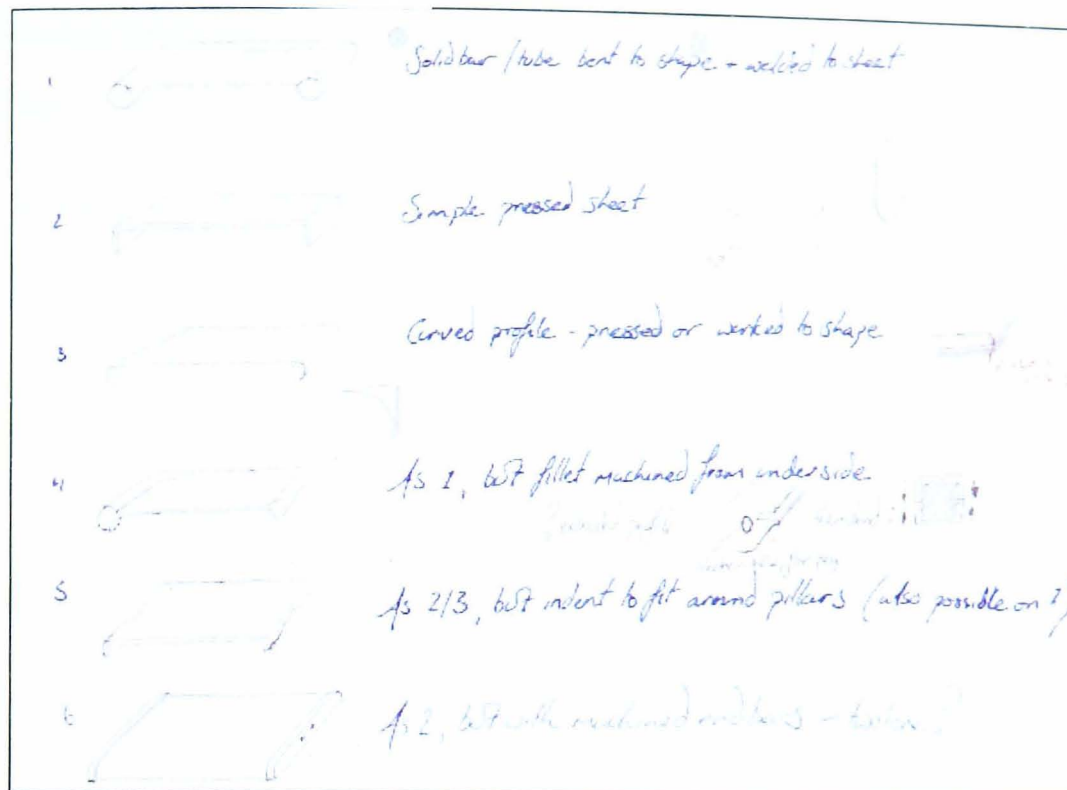 1 Solid bar / tube bent to shape + welded to sheet
2 Simple pressed sheet
3 Curved profile - pressed or worked to shape
4 As 1, but fillet machined from underside
5 As 2/3, but indent to fit around pillars (also possible on
6 As 2, but with machined